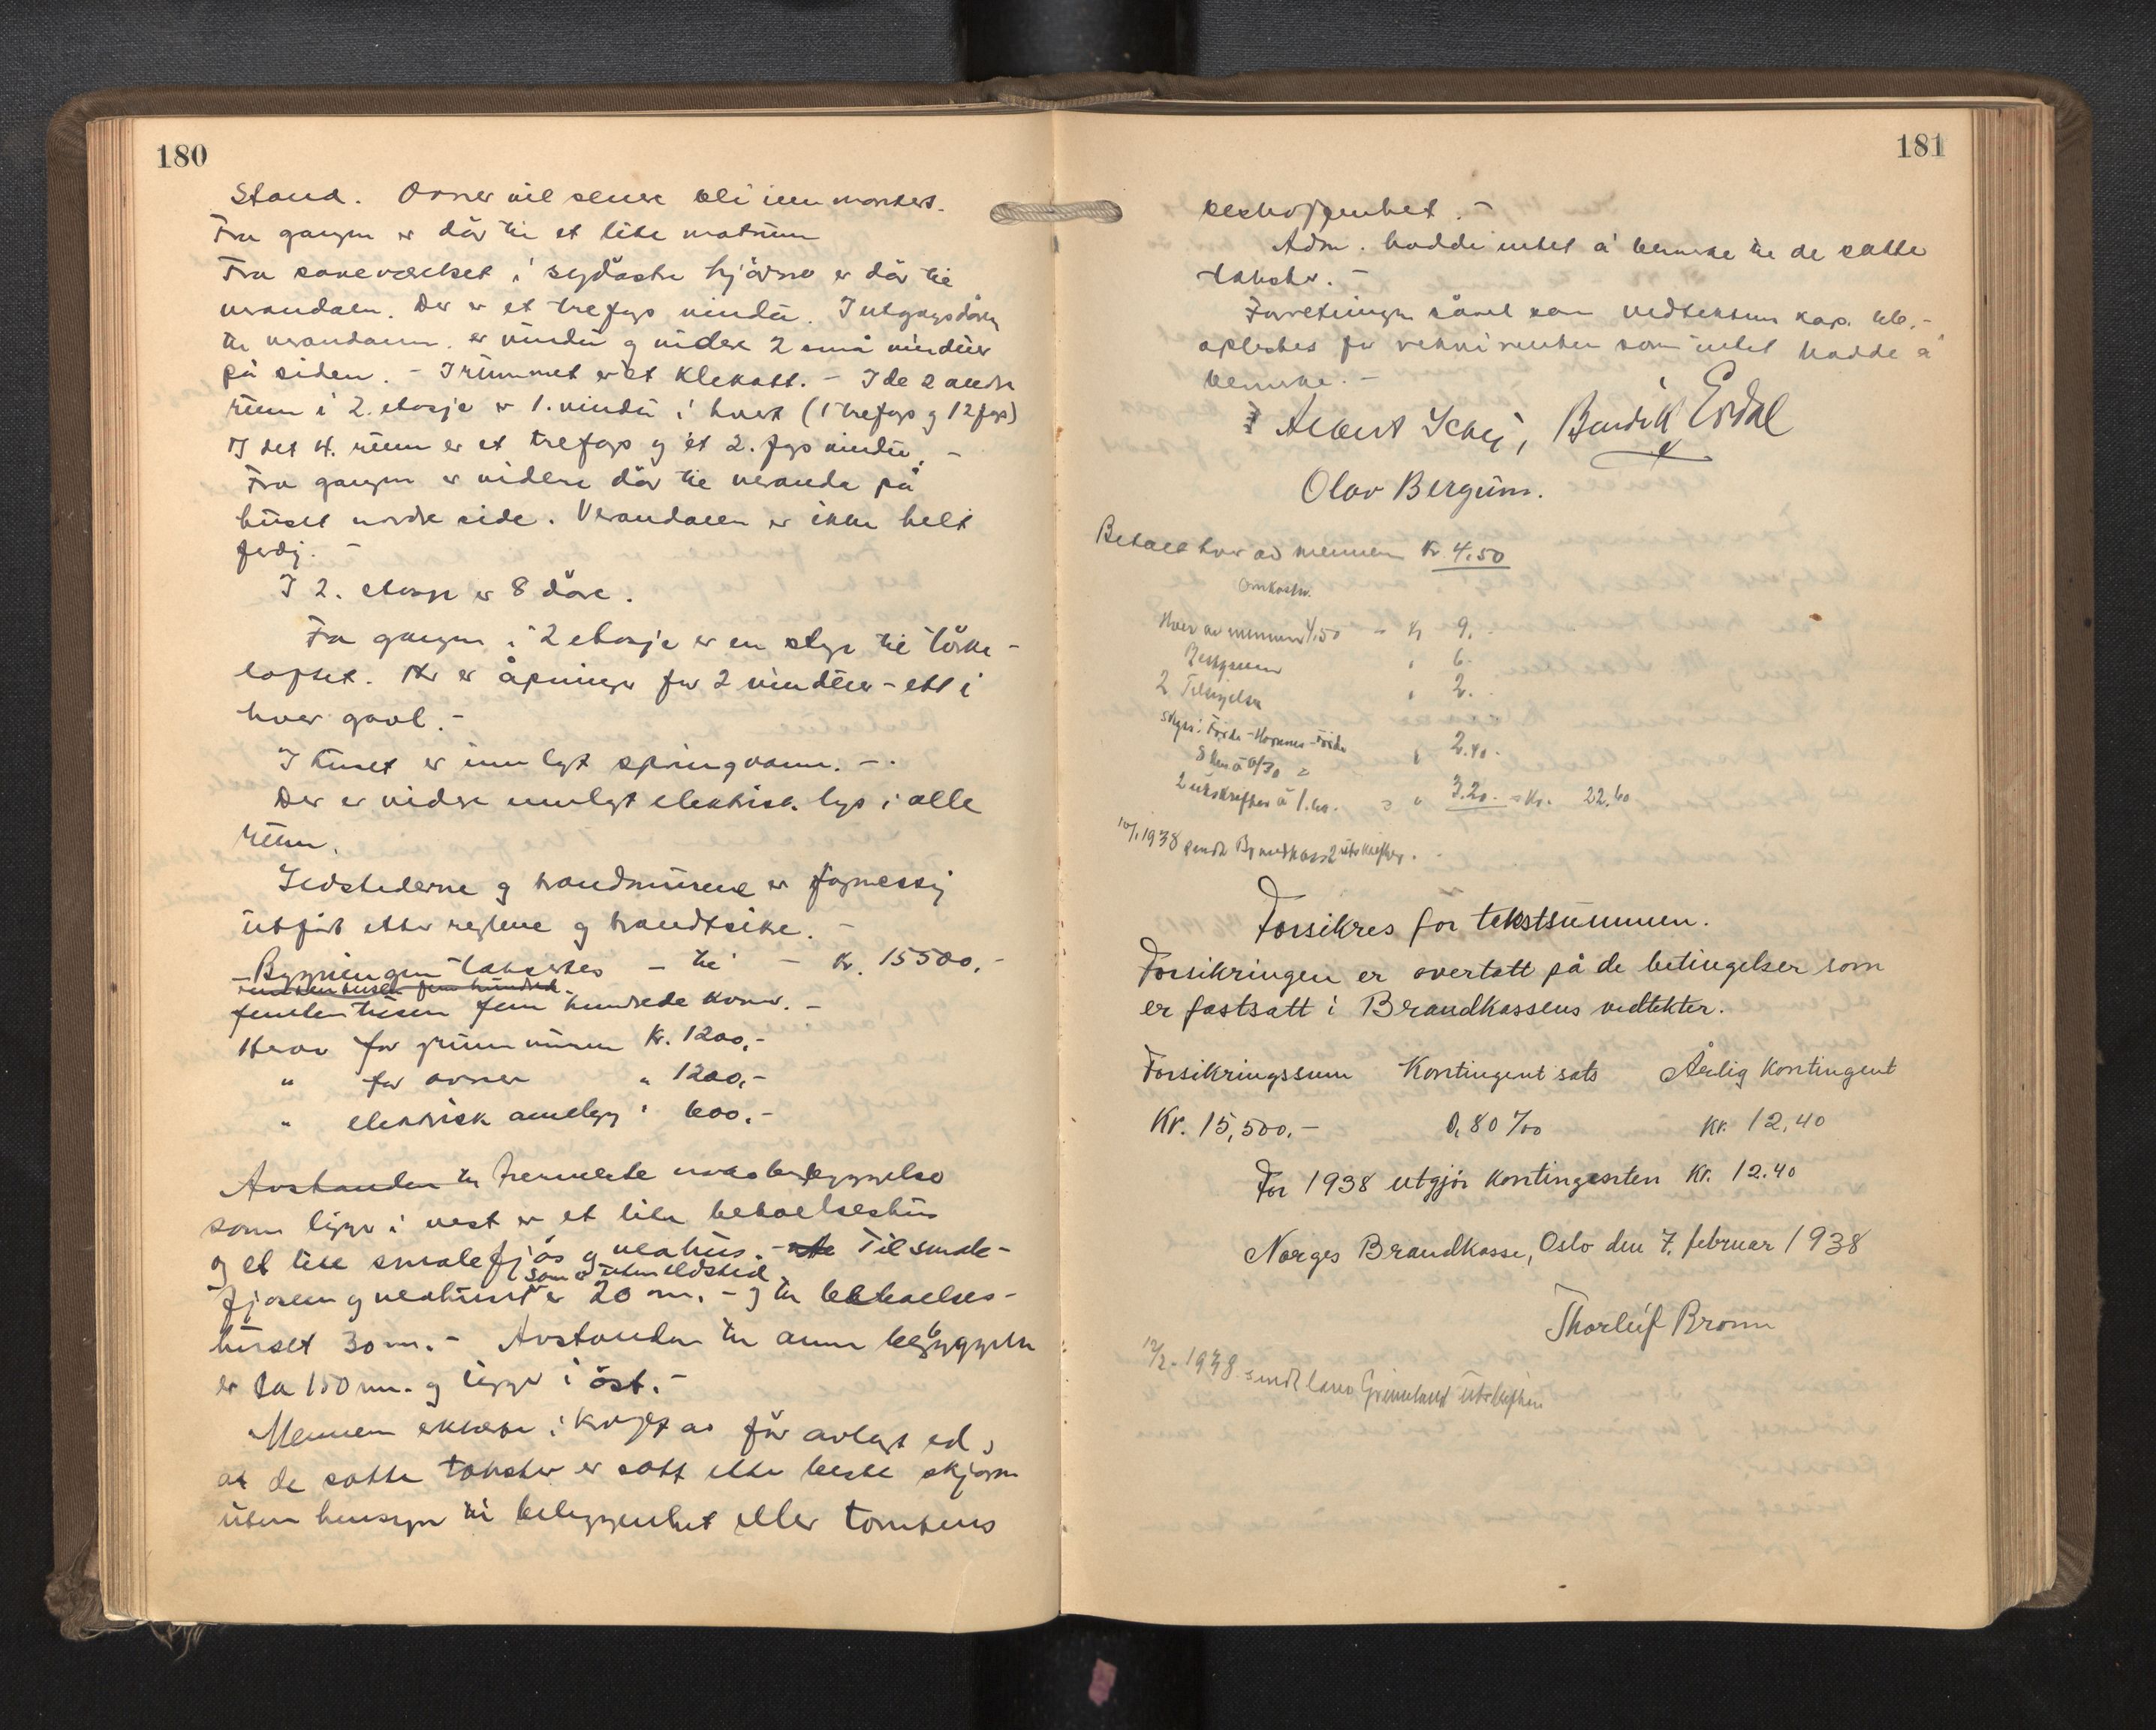 180
stand. Ovner vil senere bli innmontert.
Fra gangen er dör til et lite matrum
Fra soveværelset i sydöstre hjörne er dör til
verandaen. Der er et trefags vindu. I utgangsdören
til verandaen er vindu og videre 2 små vinduer
på siden. - I rummet er et klekott. - I de 2 andre
rum i 2. etasje er 1. vindu i hvert (1 trefags og 1 2 fags)
I det 4. rum er et trefags og et 2. fags vindu. -
Fra gangen er videre dör til veranda på
huset nordre side. Verandaen er ikke helt
ferdig. -
I 2. etasje er 8 döre.
Fra gangen i 2 etasje er en stige til törke-
loftet. Her er åpninger for 2 vinduer - ett i
hver gavl. -
I huset er innlagt springvann. -
Der er videre innlagt elektrisk lys i alle
rum.
Ildstederne og brandmurene er fagmessig
utfört etter reglene og brandtsikre. -
Bygningen takseres - til - Kr. 15500,-
femten tusen fem hundrede kroner. -
Herav for grunnmuren Kr. 1200,-
" for ovner " 1200,-
" elektrisk anlegg " 600,-
Avstanden til nermeste nabobebyggelse
som ligger i vest er et lite beboelseshus
og et lite smalefjös og vedhus. - Til smale-
fjosen og vedhuset som er uten ildsted er 20 m. - og til beboelses-
huset 30 m. - Avstanden til annen bebyggelse
er ca 150 m. og ligger i öst. -
Mennene erklærer i kraft av för avlagt ed,
at de satte takster er satt etter beste skjönn
uten hensyn til beliggenhet eller tomtens
181
beskaffenhet. -
Adm. hadde intet å bemerke til de satte
takster. -
Forretningen såvel som vedtektene kap.
oplestes for rekvirenten som intet hadde å
bemerke. -
Bendik Erdal
Olav Bergum.
Betalt hver av mennene Kr. 4.50
Omkostn.
Hver av mennene 4.50 - Kr 9.-
Bestyreren " 6.-
2 Tilsigelser " 2.-
Skyss: Förde - Hornnes - Förde
8 km à 0/30 = " 2.40.-
2 utskrifter à 1.60. = " 3.20.- = Kr. 22.60
10/1 1938 sendt Brandkassa 2 utskrifter.
Forsikres for tekstsummen.
Forsikringen er overtatt på de betingelser som
er fastsatt i Brandkassens vedtekter.
Forsikringssum Kontingentsats Årlig kontingent
Kr. 15,500.- 0,80 ‰ Kr. 12,40
For 1938 utgjör kontingenten Kr. 12.40
Norges Brandkasse, Oslo den 7. februar 1938
Thorleif Bronn
12/2 - 1938 sendt Grimeland utskriften